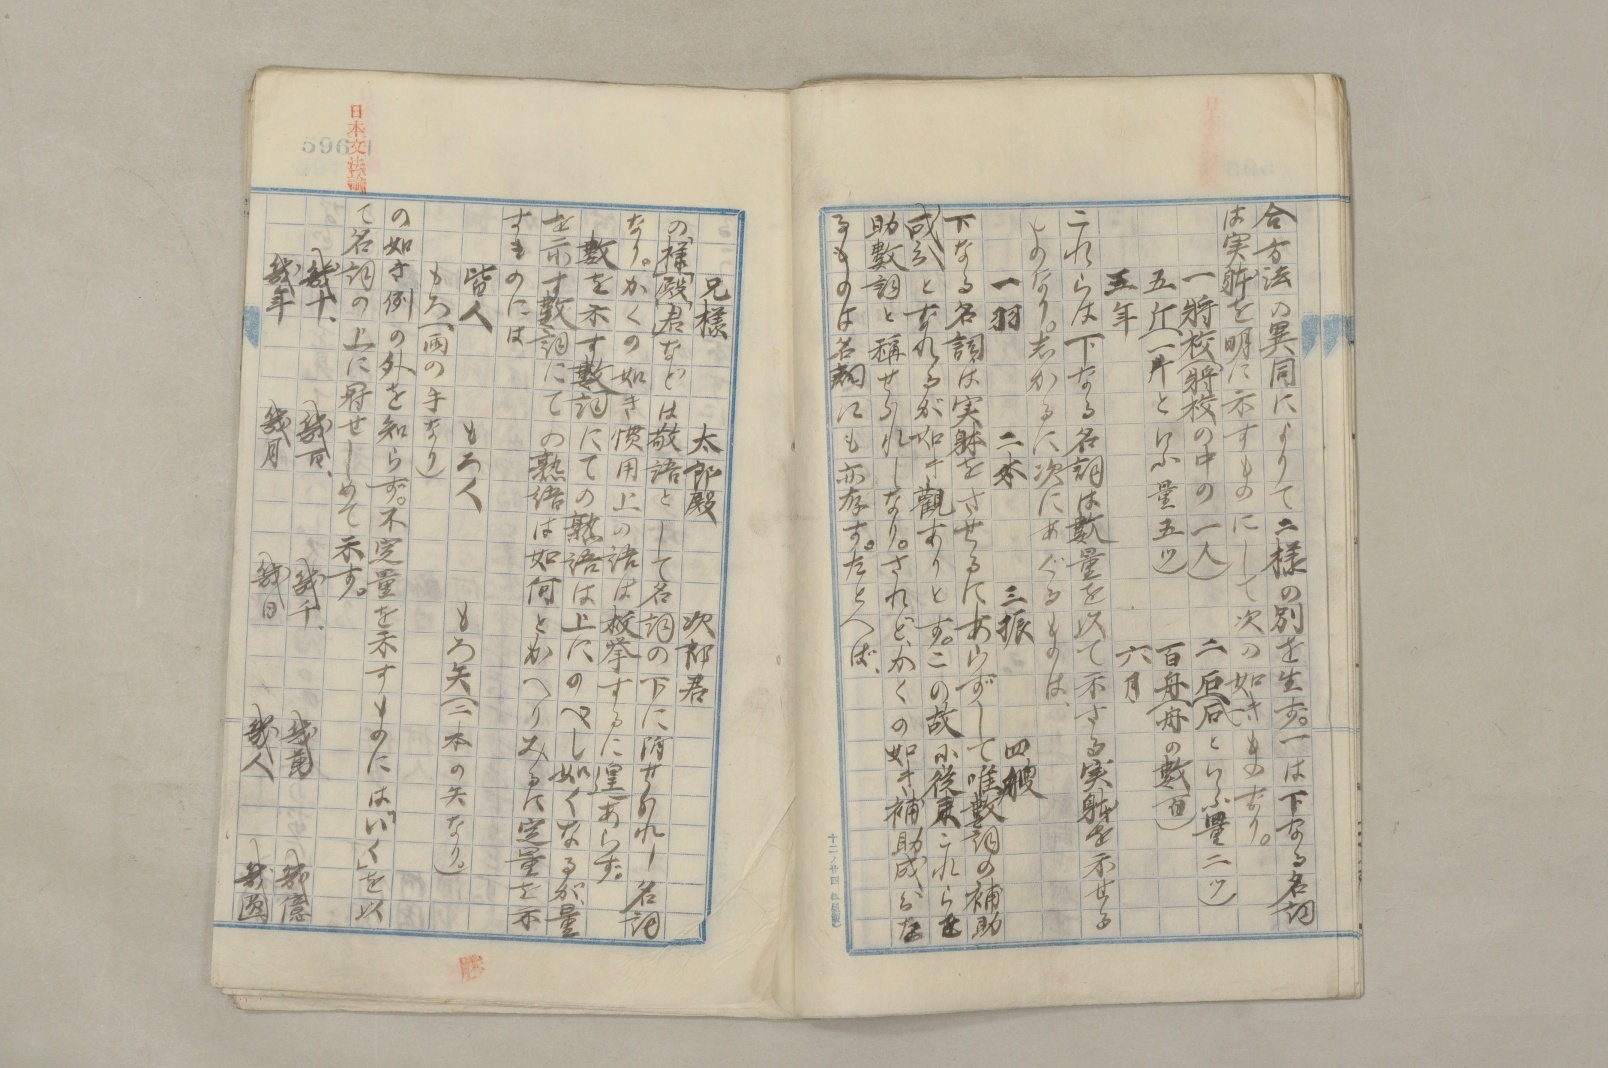 合方法の異同によりて二様の別を生ず。一は下なる名詞
は実躰を明に示すものにして次の如きものなり。
一将校(将校の中の一人)　二石(石といふ量二ツ)
五斤(一斤といふ量五ツ)　百舟(舟の数百)
五年　六月
これらは下なる名詞は数量を以て示さる実躰を示せる
ものなり。志かるに次にあぐるものは、
一羽　二本　三振　四艘
下なる名詞は実躰をさせるにあらずして唯数詞の補助
成分となれるが如き観ありとす。この故に従来これらを
助数詞と称せられしなり。されど、かくの如き補助成分な
るものは名詞にも亦存す。たとへば、
兄様　太郎殿　次郎君
の「様」「殿」「君」などは敬語として名詞の下に附せられし名詞
なり。かくの如き慣用上の語は枚挙するに遑あらず。
数を示す数詞にての熟語は上にのべし如くなるが、量
を示す数詞にての熟語は如何とかへりみるに定量を示
すものには
皆人　もろ人　もろ矢(二本の矢なり。)
もろ(両の手なり)
の如き例の外を知らず。不定量を示すものには「いく」を以
て名詞の上に冠せしめて示す。
幾十、幾百、幾千、幾萬　幾億
幾年　幾月　幾日　幾人　幾回
日本文法論
596